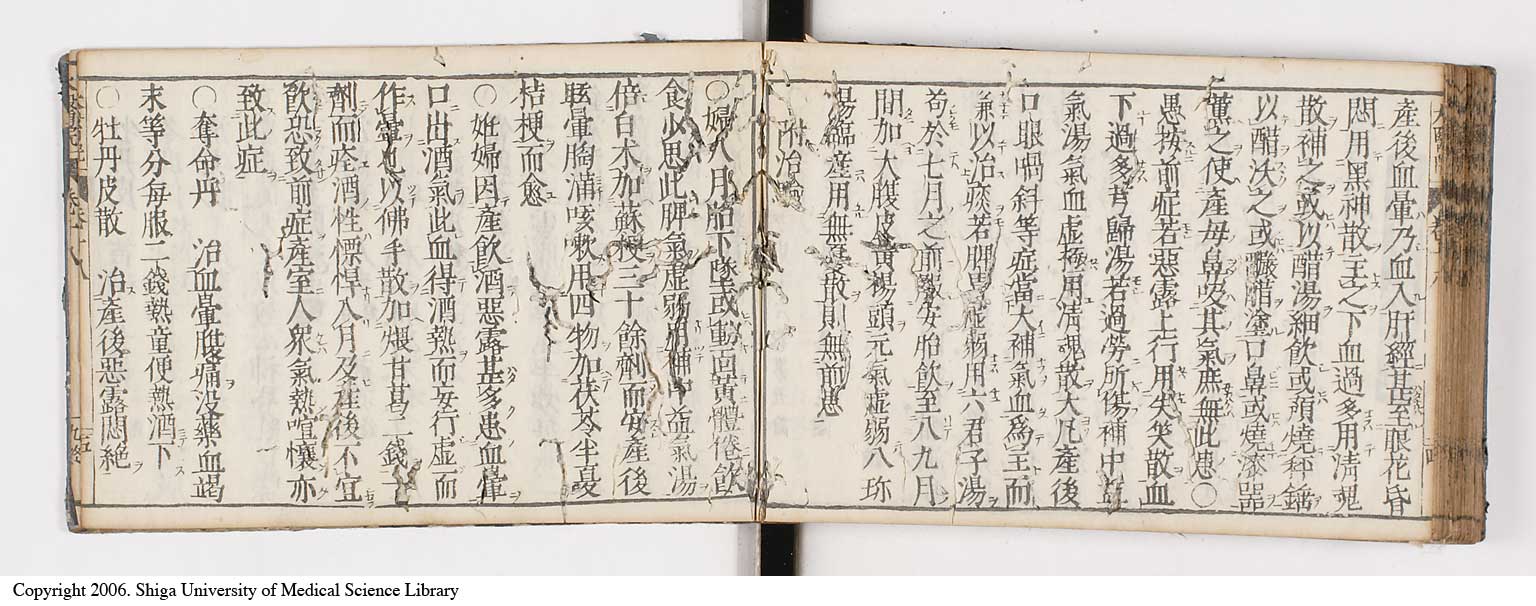 產後血暈乃血入肝經甚至眼花昏
悶用黑神散主之下血過多用清魂
散補之或以醋湯細飲或預燒秤錘
以醋沃之或釅醋塗口鼻或燒漆器
薰之使產母鼻吸其氣庶無此患〇
愚按前症若惡露上行用失笑散血
下過多芎歸湯若過勞所傷補中益
氣湯氣血虛極用清魂散大凡產後
口眼喎斜等症當大補氣血爲主而
兼以治痰若脾胃虛弱用六君子湯
苟於七月之前服安胎飲至八九月
間加大腹皮黃楊頭元氣虛弱八珍
湯臨產用無憂散則無前患
附治驗
〇婦八月胎下墜或動面黃體倦飲
食少思此脾氣虛弱用補中益氣湯
倍白朮加蘇梗三十餘劑而安產後
眩暈胸滿咳嗽用四物加茯苓半夏
桔梗而愈
〇姙婦因產飲酒惡露甚多患血暈
口出酒氣此血得酒熱而妄行虛而
作暈也以佛手散加煨甘葛二錢一
劑而痊酒性慓悍入月及產後不宜
飲恐致前症產室人衆氣熱喧懷亦
致此症
〇奪命丹　治血暈腹痛没藥血竭
末等分每服二錢熱童便熱酒下
〇牡丹皮散　治產後惡露悶絕
Copyright 2006. Shiga University of Medical Science Library